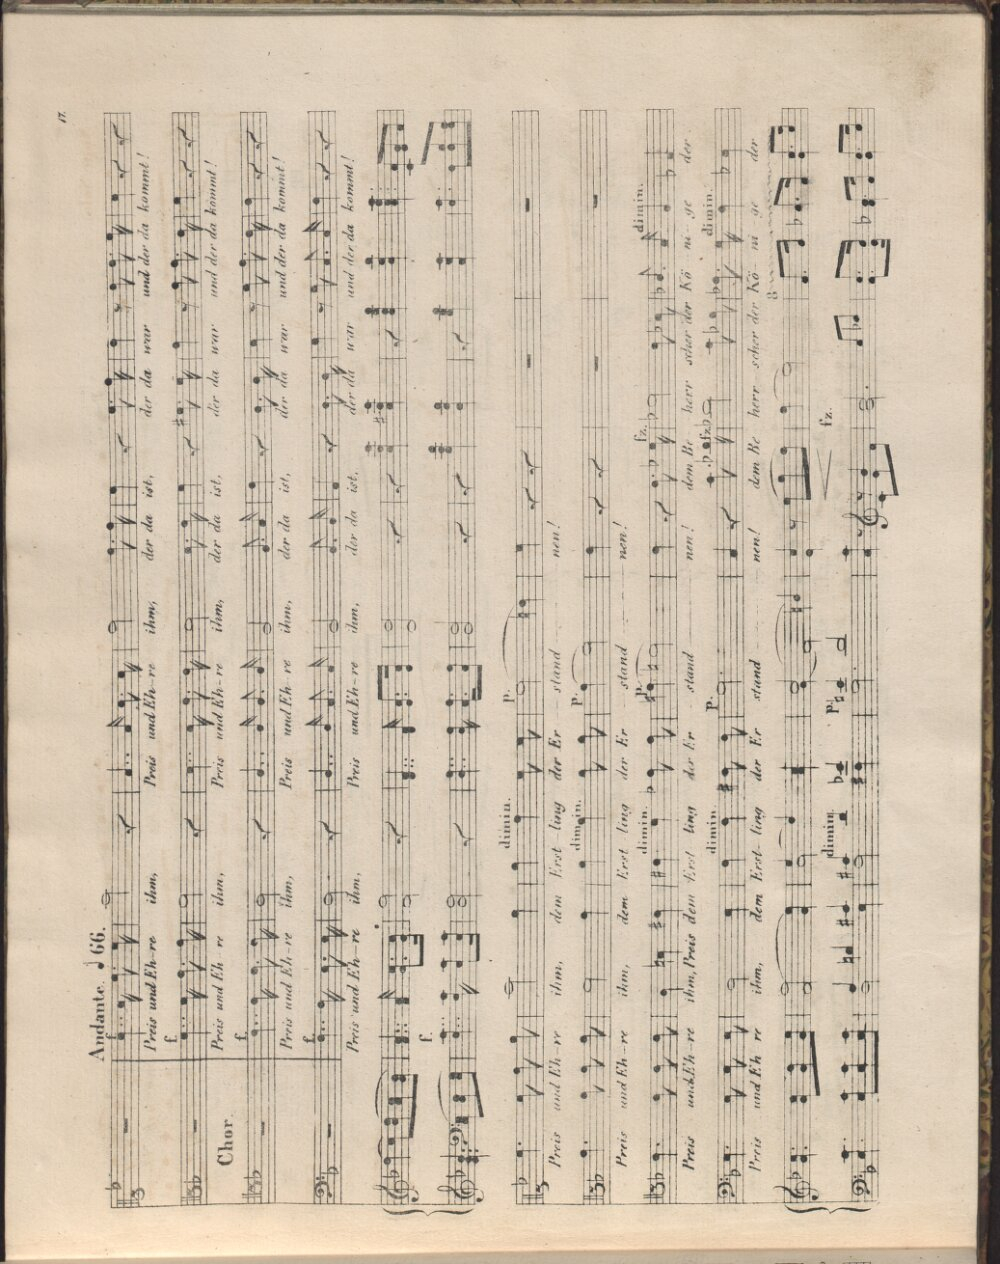 17.
Andante. ♩66.
f.
Preis und Eh-re ihm, Preis und Eh-re ihm, der da ist, der da war und der da kommt!
f.
Preis und Eh re ihm, Preis und Eh-re ihm, der da ist. der da war und der da kommt!
Chor
f.
Preis und Eh-re ihm, Preis und Eh re ihm, der da ist, der da war und der da kommt!
f.
Preis und Eh-re ihm, Preis und Eh-re ihm, der da ist. der da war und der da kommt!
f.
dimin. p.
Preis und Eh re ihm, dem Erst ling der Er stand nen!
dimin. p.
Preis und Eh re ihm, dem Erst ling der Er stand nen!
dimin. p. fz. dimin.
Preis und Eh-re ihm, Preis dem Erst ling der Er stand nen! dem Be herr scher der Kö-ni-ge der
dimin. p. fz. dimin.
Preis und Eh re ihm, dem Erst-ling der Er stand nen! dem Be herr scher der Kö ni ge der
8
dimin p. fz.